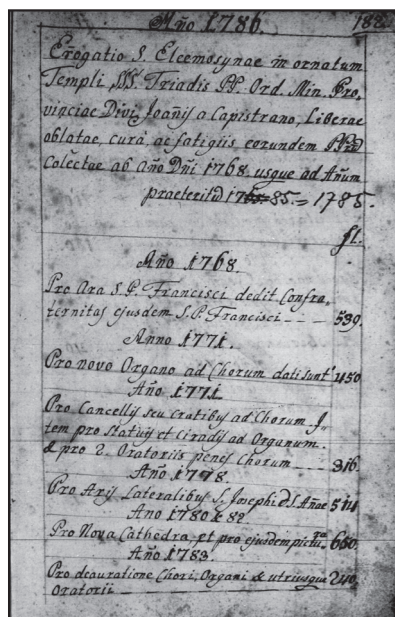 Año 1786. 182
Erogatio S. Elcemosynae in ornatum
Templi SSS. Triadis PP. Ord. Min. Pro„
vinciae Divi Joañis a Capistrano, Liberae
oblatae, cura ac fatigiis eorundem
Colectae ab Año Dñi 1768. usque ad Añum
praeteritũ 85.= 1785.
fl.
Año 1768.
Pro Ara S. P. Francisci dedit Confra„
ternitas ejusdem S. P. Francisci — — 539.
Anno 1771.
Pro novo Organo ad Chorum dati sunt 450
Año 1771.
Pro Cancellis seu Cratibus ad Chorum J„
tem pro Statuis et Ciradis ad Organum.
& pro 2. Oratoriis penes Chorum — 316.
Año 1778.
Pro Aris Lateralibus S. Josephi & S. Añae 514
Año 1780 & 82.
Pro Nova Cathedra, et pro ejusdem pictura 660.
Año 1783.
Pro deauratione Chori, Organi & utriusque 240.
Oratorii —